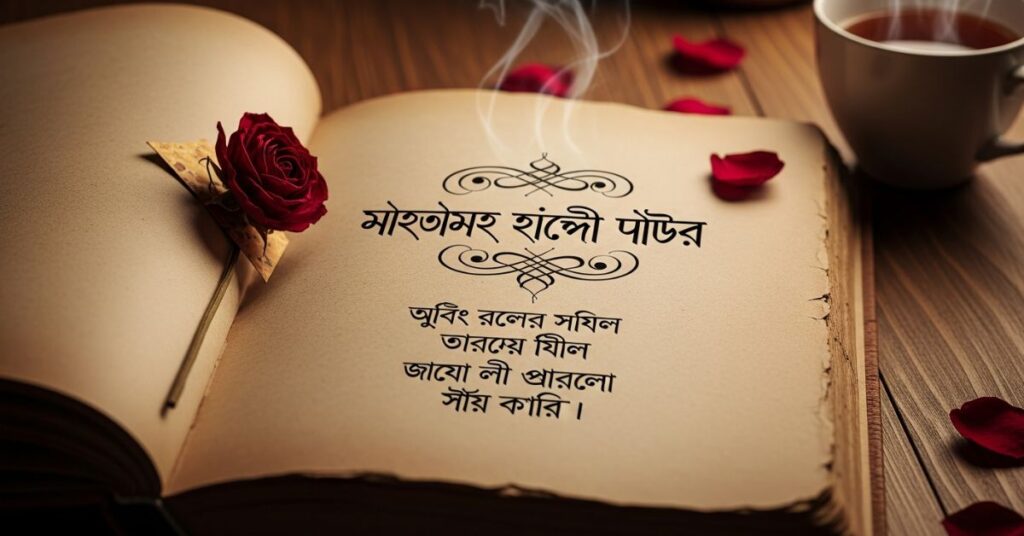 মোহতামহ হাংস্পী পাউর
অুবিং রলের সযিল
তারয়েে যিীল
জাযো লী প্রারলো
সাঁয় কারি ।